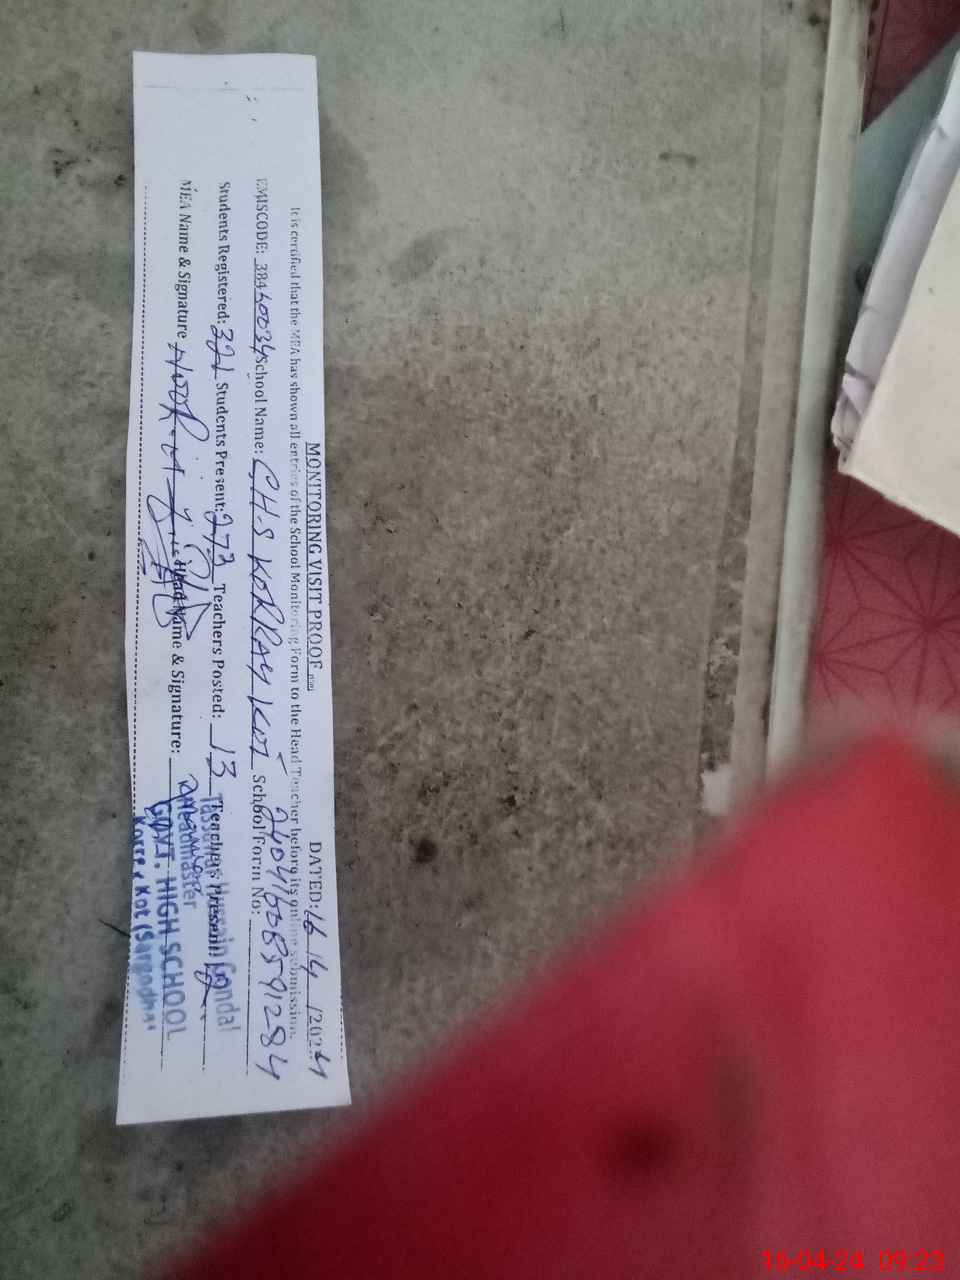 MONITORING VISIT PROOF
DATED: 16 /4 /2024
It is certified that the MEA has shown all entries of the School Monitoring Form to the Head Teacher before its online submission.
EMISCODE: 38460034 School Name: G.H.S KORRAY KOT School Form No: 24041608591284
Students Registered: 321 Students Present: 273 Teachers Posted: 13 Teachers Present:
MEA Name & Signature Head Name & Signature:
Tassawar Hussain Gondal
Headmaster
GOVT. HIGH SCHOOL
Korray Kot (Sargodha)
16-04-24 09:23